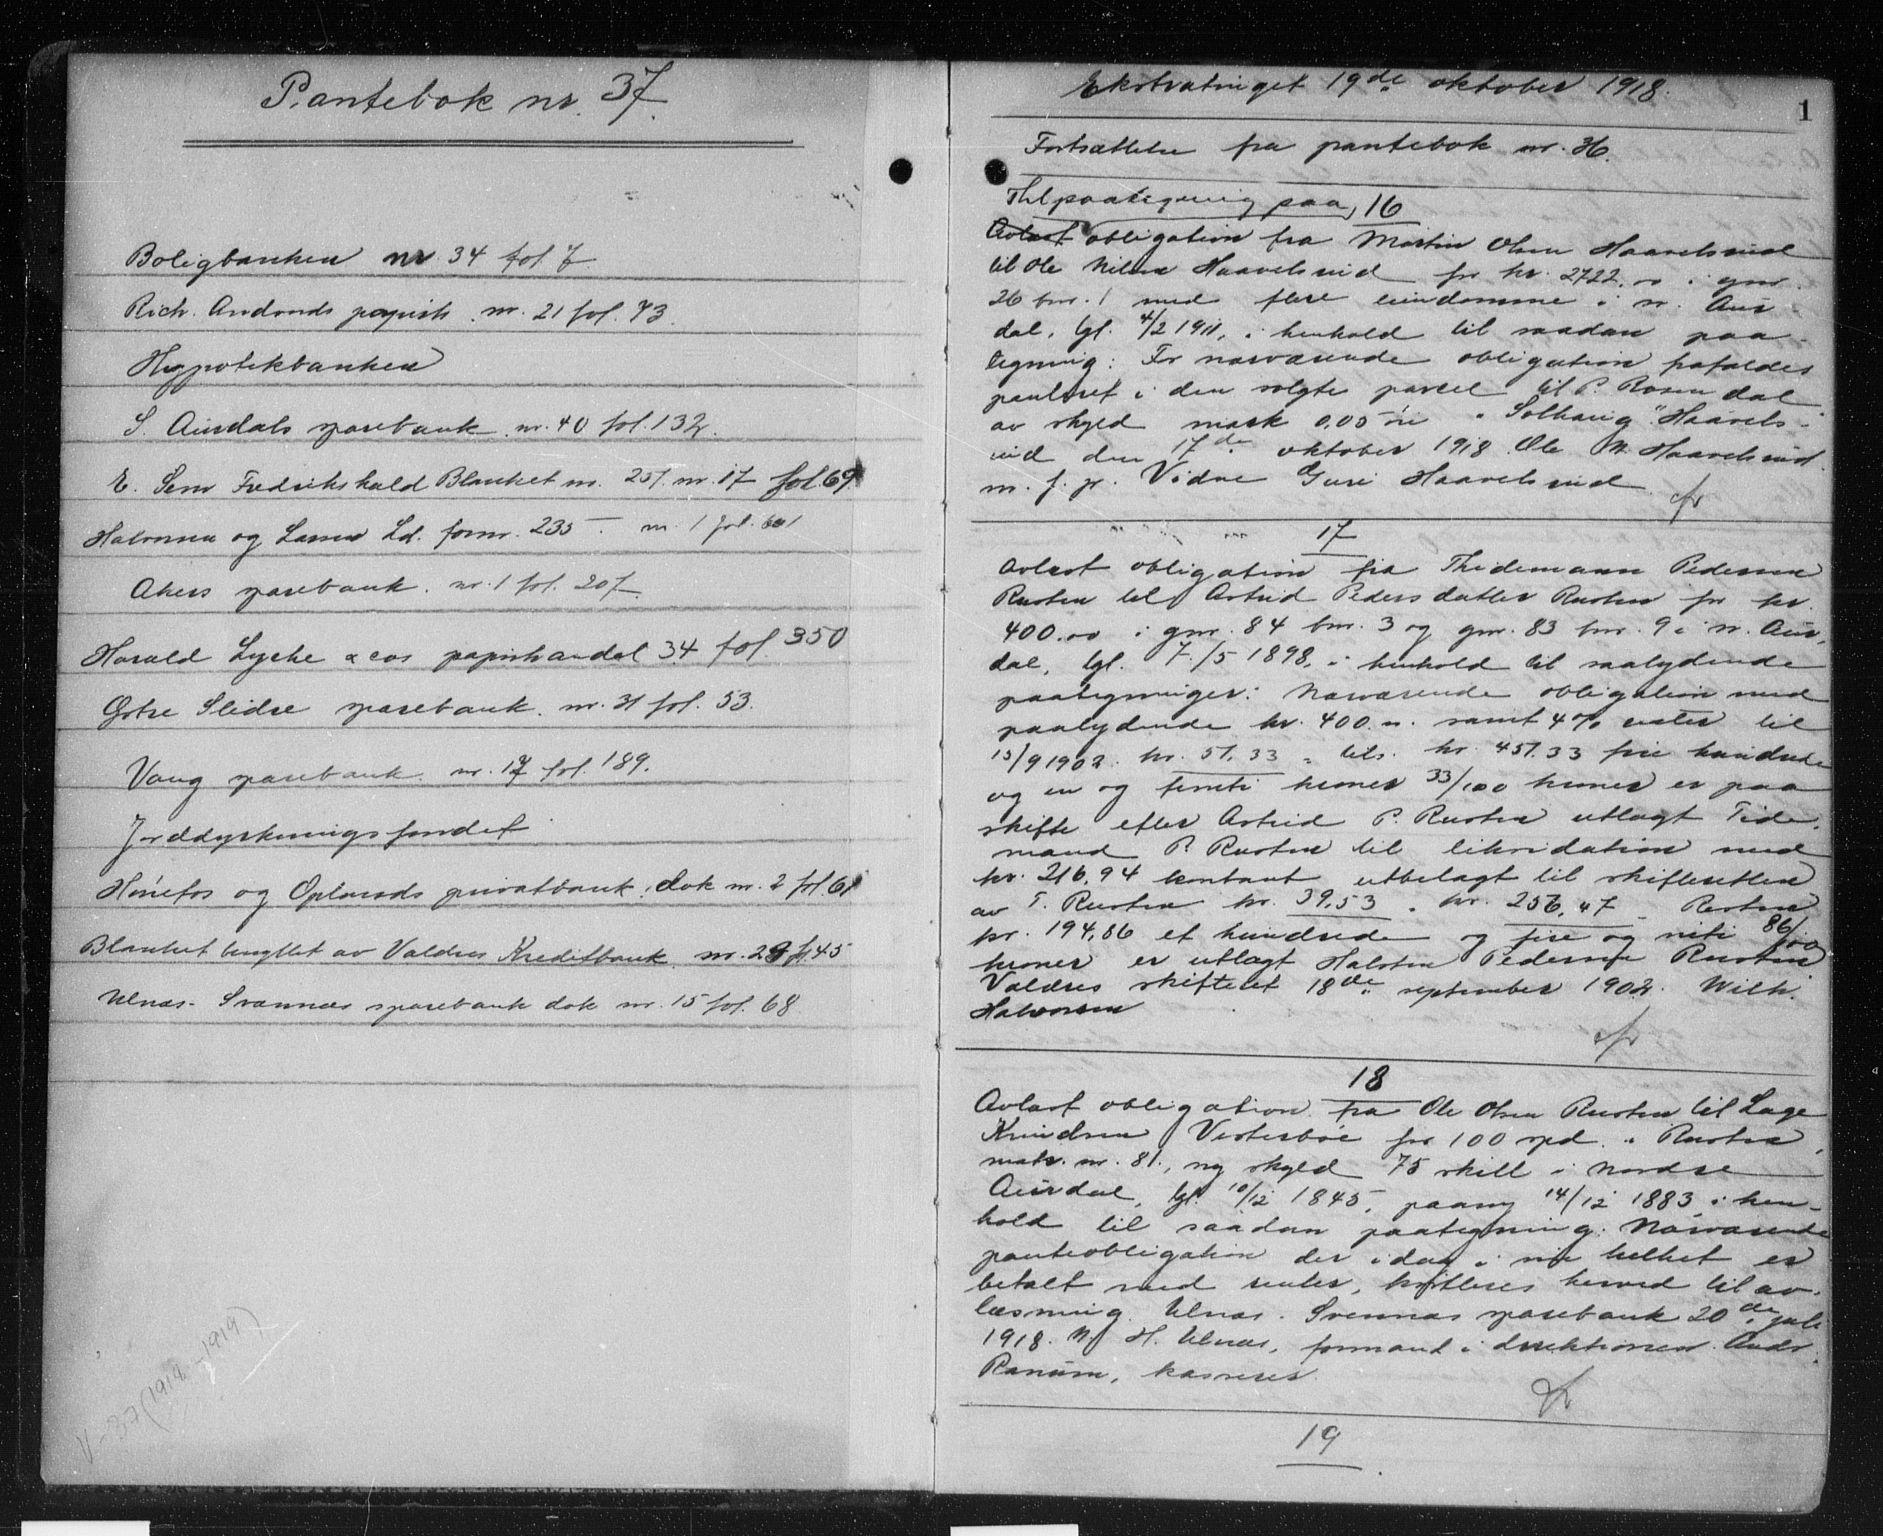 Pantebok nr. 37.
Boligbanken nr 34 fol 7
Rich. Andvords papirh. nr. 21 fol. 73.
Hypotekbanken
S. Aurdals sparebank nr. 40 fol. 132.
E. Sem Fredrikshald Blanket nr. 257. nr. 17 fol. 69
Halvorsen og Larsen Ld. formr. 235 – nr. 1 fol.
Akers sparebank. nr. 1 fol. 207.
Harald Lyche & cos papirhandel 34 fol. 350
Østre Slidre sparebank. nr. 31 fol. 53.
Vang sparebank. nr. 17 fol. 189.
Jorddyrkningsfondet
Hønefos og Oplands privatbank. dok nr. 2 fol. 61
Blanket benyttet av Valdres Kreditbank nr. 29 f. 45
Ulnæs-Svennæs sparebank dok nr. 15 fol. 68
V-37 (1918-1919)
Ekstratinget 19de oktober 1918.
1
Fortsættelse fra pantebok nr. 36.
Thlpaategning paa, 16
Avlæst obligation fra Martin Olsen Haavelsrud
til Ole Nilsen Haavelsrud for kr. 2722,00 i gnr.
26 bnr. 1 med flere eiendomme i n. Aur-
dal, tgl. 4/2 1911, i henhold til saadan paa-
tegning: For nærværende obligation frafaldes
panteret i den solgte parcel til P. Rosendal
av skyld mark 0,05 øre "Solhaug" Haavels-
rud den 17de oktober 1918. Ole N. Haavelsrud.
m. f. p. Vidne Guri Haavelsrud.
17
Avlæst obligation fra Thidemann Pedersen
Rusten til Astrid Pedersdatter Rusten for kr.
400.00 i gnr. 84 bnr. 3 og gnr. 83 bnr. 9 i n. Aur-
dal, tgl. 7/5 1898, i henhold til saalydende
paategninger: Nærværende obligation med
paalydende kr. 400.00 samt 4% renter til
15/9 1902. kr. 51,33 – tils. kr. 451.33 fire hundrede
og en og femti kroner 33/100 kroner er paa
skifte efter Astrid P. Rusten utlagt Tide-
mand P. Rusten til likvidation med
kr. 216,94 kontant utbelagt til skifteretten
av T. Rusten kr. 39,53 – kr. 256,47 – Resten
kr. 194,86 et hundrede og fire og niti 86/100
kroner er utlagt Halsten Pedersen Rusten
Valdres skifteret 18de september 1902. Wilh.
Halvorsen
18
Avlæst obligation fra Ole Olsen Rusten til Lage
Knudsen Vestersbøe for 100 spd. i Rusten,
matr. nr. 81, ny skyld 75 skill i nordre
Aurdal, tgl. 10/12 1845, paany 14/12 1883, i hen-
hold til saadan paategning: Nærværende
panteobligation der idag i sin helhet er
betalt med renter, kvitteres herved til av-
læsning. Ulnæs-Svennæs sparebank 20de juli
1918. N. H. Ulnæs, formand i direktionen. Andr.
Ranum, kasserer.
19